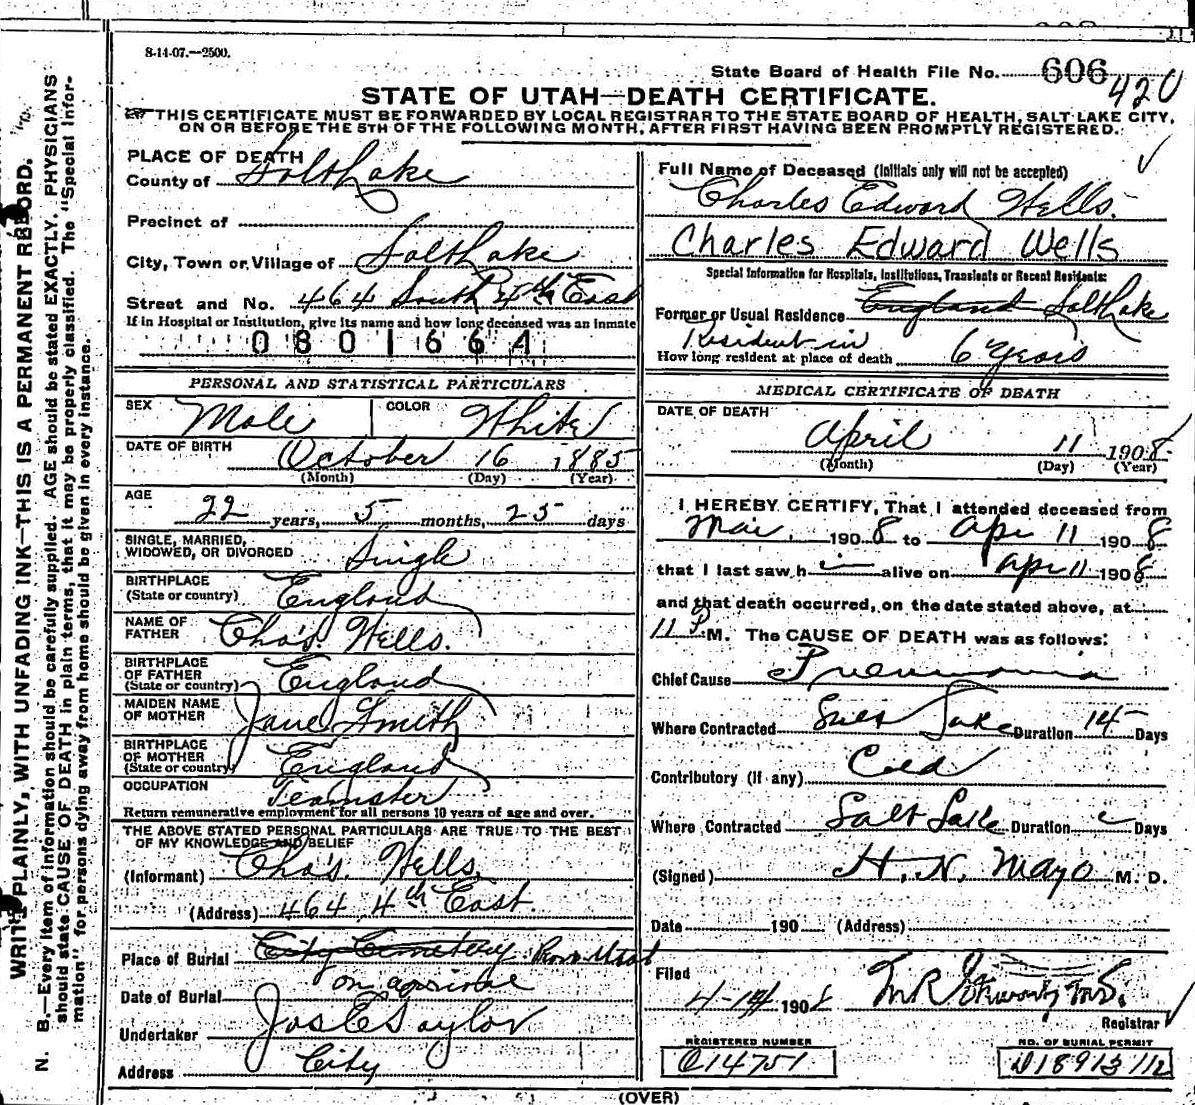 8-14-07.—2500.
State Board of Health File No. 606 420
STATE OF UTAH—DEATH CERTIFICATE.
THIS CERTIFICATE MUST BE FORWARDED BY LOCAL REGISTRAR TO THE STATE BOARD OF HEALTH, SALT LAKE CITY,
ON OR BEFORE THE 5TH OF THE FOLLOWING MONTH, AFTER FIRST HAVING BEEN PROMPTLY REGISTERED.
WRITE PLAINLY, WITH UNFADING INK—THIS IS A PERMANENT RECORD.
N. B.—Every item of information should be carefully supplied. AGE should be stated EXACTLY. PHYSICIANS
should state CAUSE OF DEATH in plain terms, that it may be properly classified. The "Special Infor-
mation" for persons dying away from home should be given in every instance.
PLACE OF DEATH
County of Salt Lake
Precinct of
City, Town or Village of Salt Lake
Street and No. 464 South 4th East
If in Hospital or Institution, give its name and how long deceased was an inmate
0801664
PERSONAL AND STATISTICAL PARTICULARS
SEX Male COLOR White
DATE OF BIRTH October 16 1885
(Month) (Day) (Year)
AGE 22 years, 5 months, 25 days
SINGLE, MARRIED,
WIDOWED, OR DIVORCED Single
BIRTHPLACE
(State or country) England
NAME OF
FATHER Cha's. Wells.
BIRTHPLACE
OF FATHER
(State or country) England
MAIDEN NAME
OF MOTHER Jane Smith
BIRTHPLACE
OF MOTHER
(State or country) England
OCCUPATION Teamster
Return remunerative employment for all persons 10 years of age and over.
THE ABOVE STATED PERSONAL PARTICULARS ARE TRUE TO THE BEST
OF MY KNOWLEDGE AND BELIEF
(Informant) Cha's. Wells.
(Address) 464 4th East.
Place of Burial City Cemetery
Date of Burial on arrival
Undertaker Jos E Taylor
Address City
Full Name of Deceased (Initials only will not be accepted)
Charles Edward Wells.
Charles Edward Wells
Special Information for Hospitals, Institutions, Transients or Recent Residents:
Former or Usual Residence England Salt Lake
Resident in
How long resident at place of death 6 Years
MEDICAL CERTIFICATE OF DEATH
DATE OF DEATH
April 11 1908
(Month) (Day) (Year)
I HEREBY CERTIFY, That I attended deceased from
Mar. 1908 to Apr 11 1908
that I last saw h alive on Apr 11 1908
and that death occurred, on the date stated above, at
11 P M. The CAUSE OF DEATH was as follows:
Chief Cause Pneumonia
Where Contracted Salt Lake Duration 14 Days
Contributory (if any) Cold
Where Contracted Salt Lake Duration Days
(Signed) H. N. Mayo M. D.
Date 190 (Address)
Filed
4-14 1908
Registrar
REGISTERED NUMBER
C14751
NO. OF BURIAL PERMIT
D18913 1/2
(OVER)